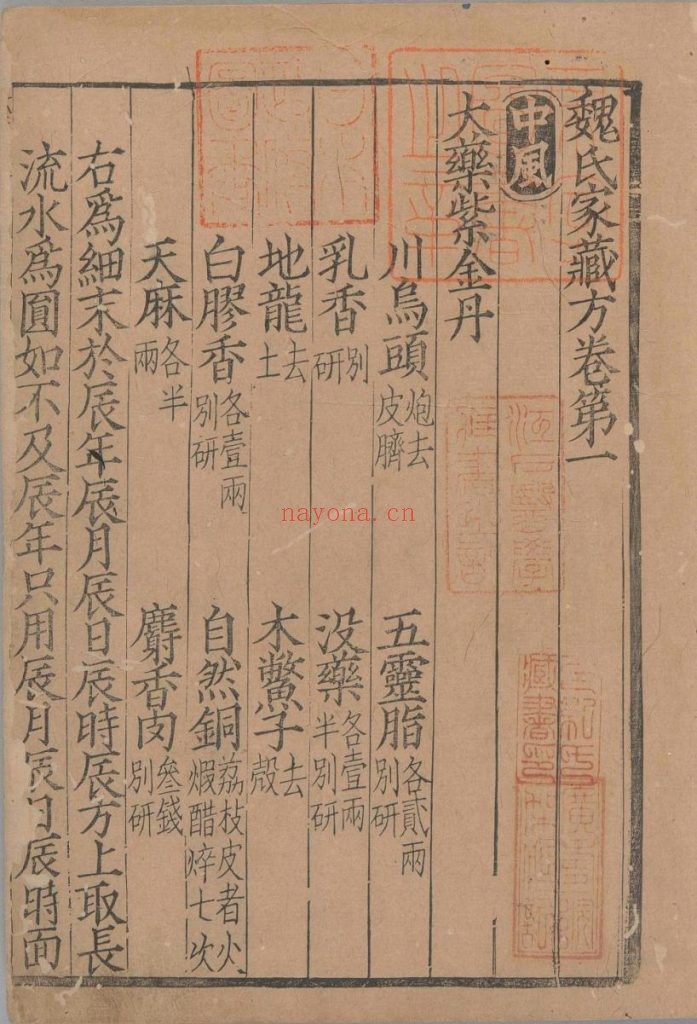 魏氏家藏方卷第一
中風
大藥紫金丹
川烏頭炮去皮臍 五靈脂各貳兩別研
乳香別研 没藥各壹兩半別研
地龍去土 木鱉子去殼
白膠香各壹兩別研 自然銅荔枝皮者火煅醋焠七次
天麻各半兩 麝香肉叄錢別研
右爲細末於辰年辰月辰日辰時辰方上取長
流水爲圓如不及辰年只用辰月辰日辰時面
nayona.cn